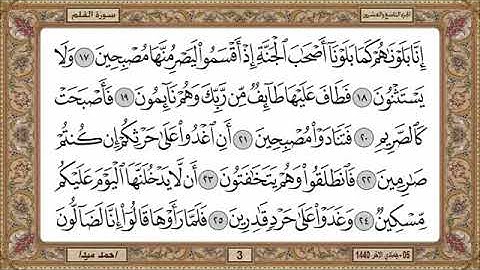 الجزء التاسع والعشرون
سورة القلم
إِنَّا بَلَوْنَاهُمْ كَمَا بَلَوْنَا أَصْحَابَ الْجَنَّةِ إِذْ أَقْسَمُوا لَيَصْرِمُنَّهَا مُصْبِحِينَ ١٧ وَلَا
يَسْتَثْنُونَ ١٨ فَطَافَ عَلَيْهَا طَائِفٌ مِّن رَّبِّكَ وَهُمْ نَائِمُونَ ١٩ فَأَصْبَحَتْ
كَالصَّرِيمِ ٢٠ فَتَنَادَوْا مُصْبِحِينَ ٢١ أَنِ اغْدُوا عَلَىٰ حَرْثِكُمْ إِن كُنتُمْ
صَارِمِينَ ٢٢ فَانطَلَقُوا وَهُمْ يَتَخَافَتُونَ ٢٣ أَن لَّا يَدْخُلَنَّهَا الْيَوْمَ عَلَيْكُم
مِّسْكِينٌ ٢٤ وَغَدَوْا عَلَىٰ حَرْدٍ قَادِرِينَ ٢٥ فَلَمَّا رَأَوْهَا قَالُوا إِنَّا لَضَالُّونَ
05 - جمادي الآخر 1440
3